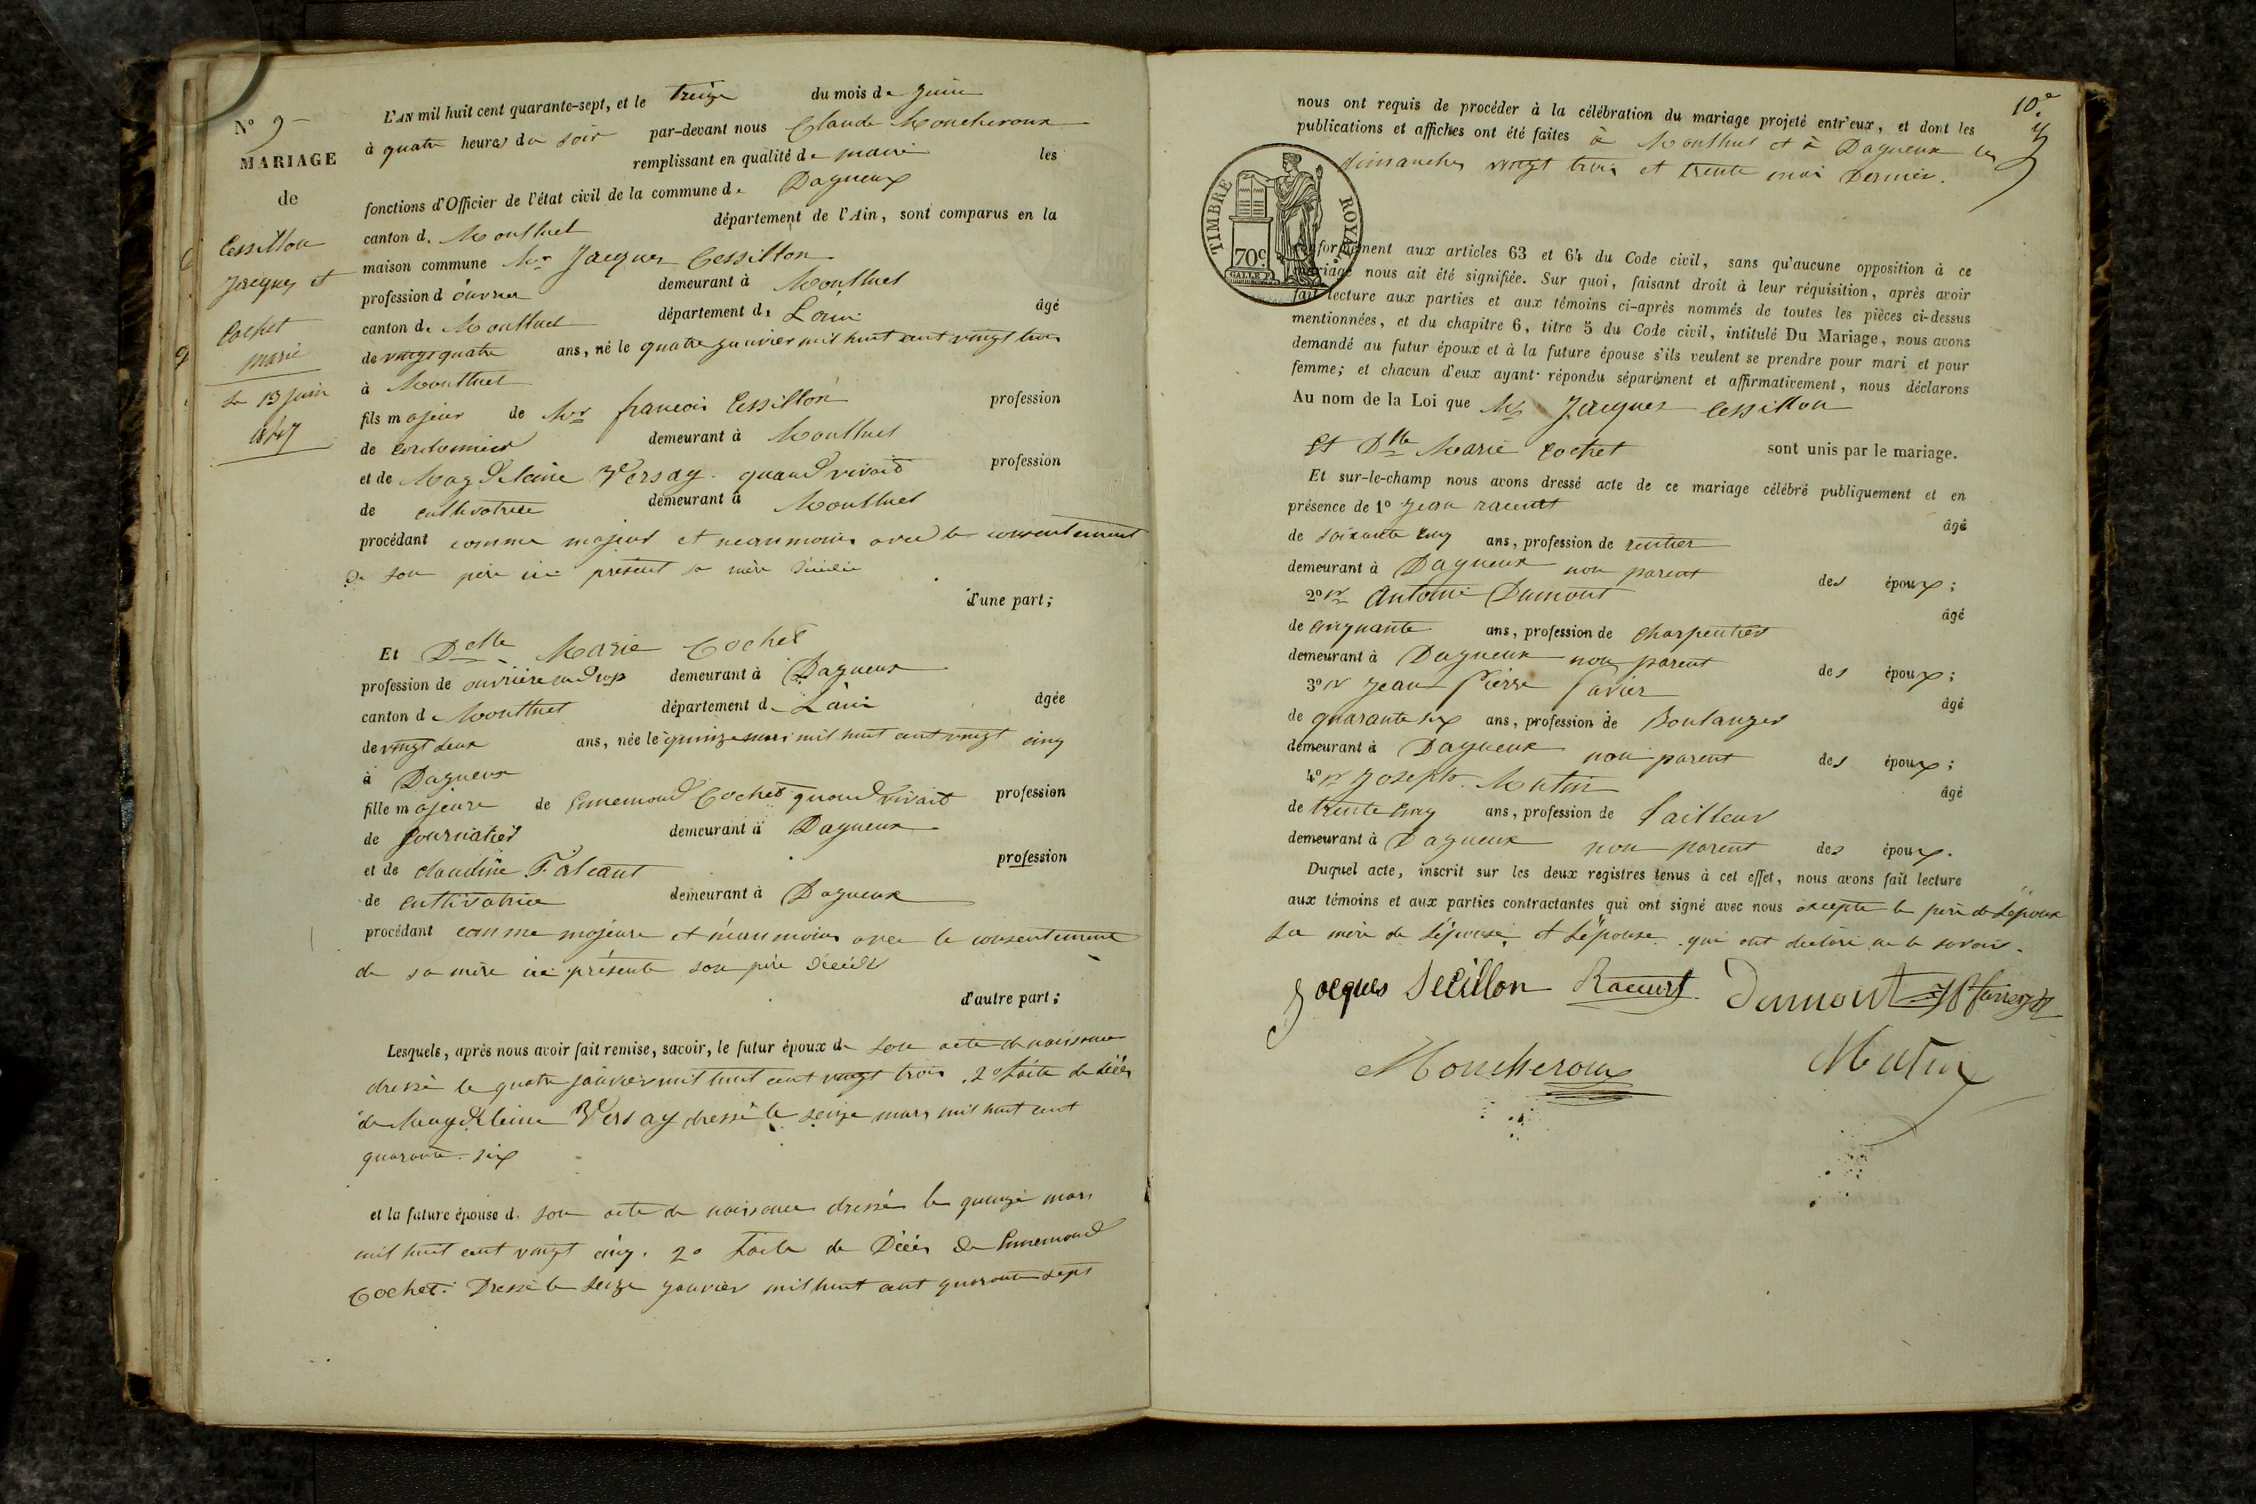 N° 9
MARIAGE
de
Cessillon
Jacques et
Cochet
Marie
Le 13 juin
1847
9
L'AN mil huit cent quarante-sept, et le treize du mois de juin
à quatre heures du soir par-devant nous Claude Moncheroux
remplissant en qualité de maire les
fonctions d'Officier de l'état civil de la commune de Dagneux
canton de Montluel département de l'Ain, sont comparus en la
maison commune Mr Jacques Cessillon
profession d'ouvrier demeurant à Montluel
canton de Montluel département de L'ain âgé
de vingt quatre ans, né le quatre janvier mil huit cent vingt trois
à Montluel
fils majeur de Mr francois Cessillon profession
de cordonnier demeurant à Montluel
et de Magdeleine Versay quand vivait profession
de cultivatrice demeurant à Montluel
procédant comme majeur et néanmoins avec le consentement
de son père ici présent sa mère décédée
d'une part;
Et Delle Marie Cochet
profession de ouvrière demeurant à Dagneux
canton de Montluel département de L'ain âgée
de vingt deux ans, née le quinze mars mil huit cent vingt cinq
à Dagneux
fille majeure de Ennemond Cochet quand vivait profession
de journalier demeurant à Dagneux
et de claudine Falcant profession
de cultivatrice demeurant à Dagneux
procédant comme majeure et néanmoins avec le consentement
de sa mère ici présente son père décédé
d'autre part;
Lesquels, après nous avoir fait remise, savoir, le futur époux de son acte de naissance
dressé le quatre janvier mil huit cent vingt trois, 2° L'acte de décès
de Magdeleine Versay dressé le seize mars mil huit cent
quarante-six
et la future épouse de son acte de naissance dressé le quinze mars
mil huit cent vingt cinq. 2° L'acte de Décès de Ennemond
Cochet. Dressé le seize janvier mil huit cent quarante sept
10e
nous ont requis de procéder à la célébration du mariage projeté entr'eux, et dont les
publications et affiches ont été faites à Montluel et à Dagneux les
dimanches vingt trois et trente mai Dernier.
TIMBRE ROYAL
70c.
conformément aux articles 63 et 64 du Code civil, sans qu'aucune opposition à ce
mariage nous ait été signifiée. Sur quoi, faisant droit à leur réquisition, après avoir
fait lecture aux parties et aux témoins ci-après nommés de toutes les pièces ci-dessus
mentionnées, et du chapitre 6, titre 5 du Code civil, intitulé Du Mariage, nous avons
demandé au futur époux et à la future épouse s'ils veulent se prendre pour mari et pour
femme; et chacun d'eux ayant répondu séparément et affirmativement, nous déclarons
Au nom de la Loi que Mr Jacques Cessillon
Et Dlle Marie Cochet sont unis par le mariage.
Et sur-le-champ nous avons dressé acte de ce mariage célébré publiquement et en
présence de 1° Jean racurt
âgé
de soixante cinq ans, profession de rentier
demeurant à Dagneux non parent des époux;
2° Sr Antoine Dumont
âgé
de cinquante ans, profession de charpentier
demeurant à Dagneux non parent des époux;
3° Sr Jean Pierre Favier
âgé
de quarante six ans, profession de Boulanger
demeurant à Dagneux non parent des époux;
4° Sr Joseph Mutin
âgé
de trente cinq ans, profession de Tailleur
demeurant à Dagneux non parent des époux.
Duquel acte, inscrit sur les deux registres tenus à cet effet, nous avons fait lecture
aux témoins et aux parties contractantes qui ont signé avec nous excepté le père de L'époux
La mère de L'épouse et L'épouse qui ont déclaré ne le savoir.
Jacques Secillon Racurt Dumont
Moncheroux Mutin